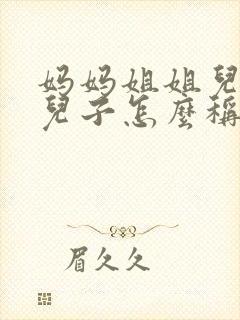 妈妈姐姐兒
兒子怎麼稱
眉久久